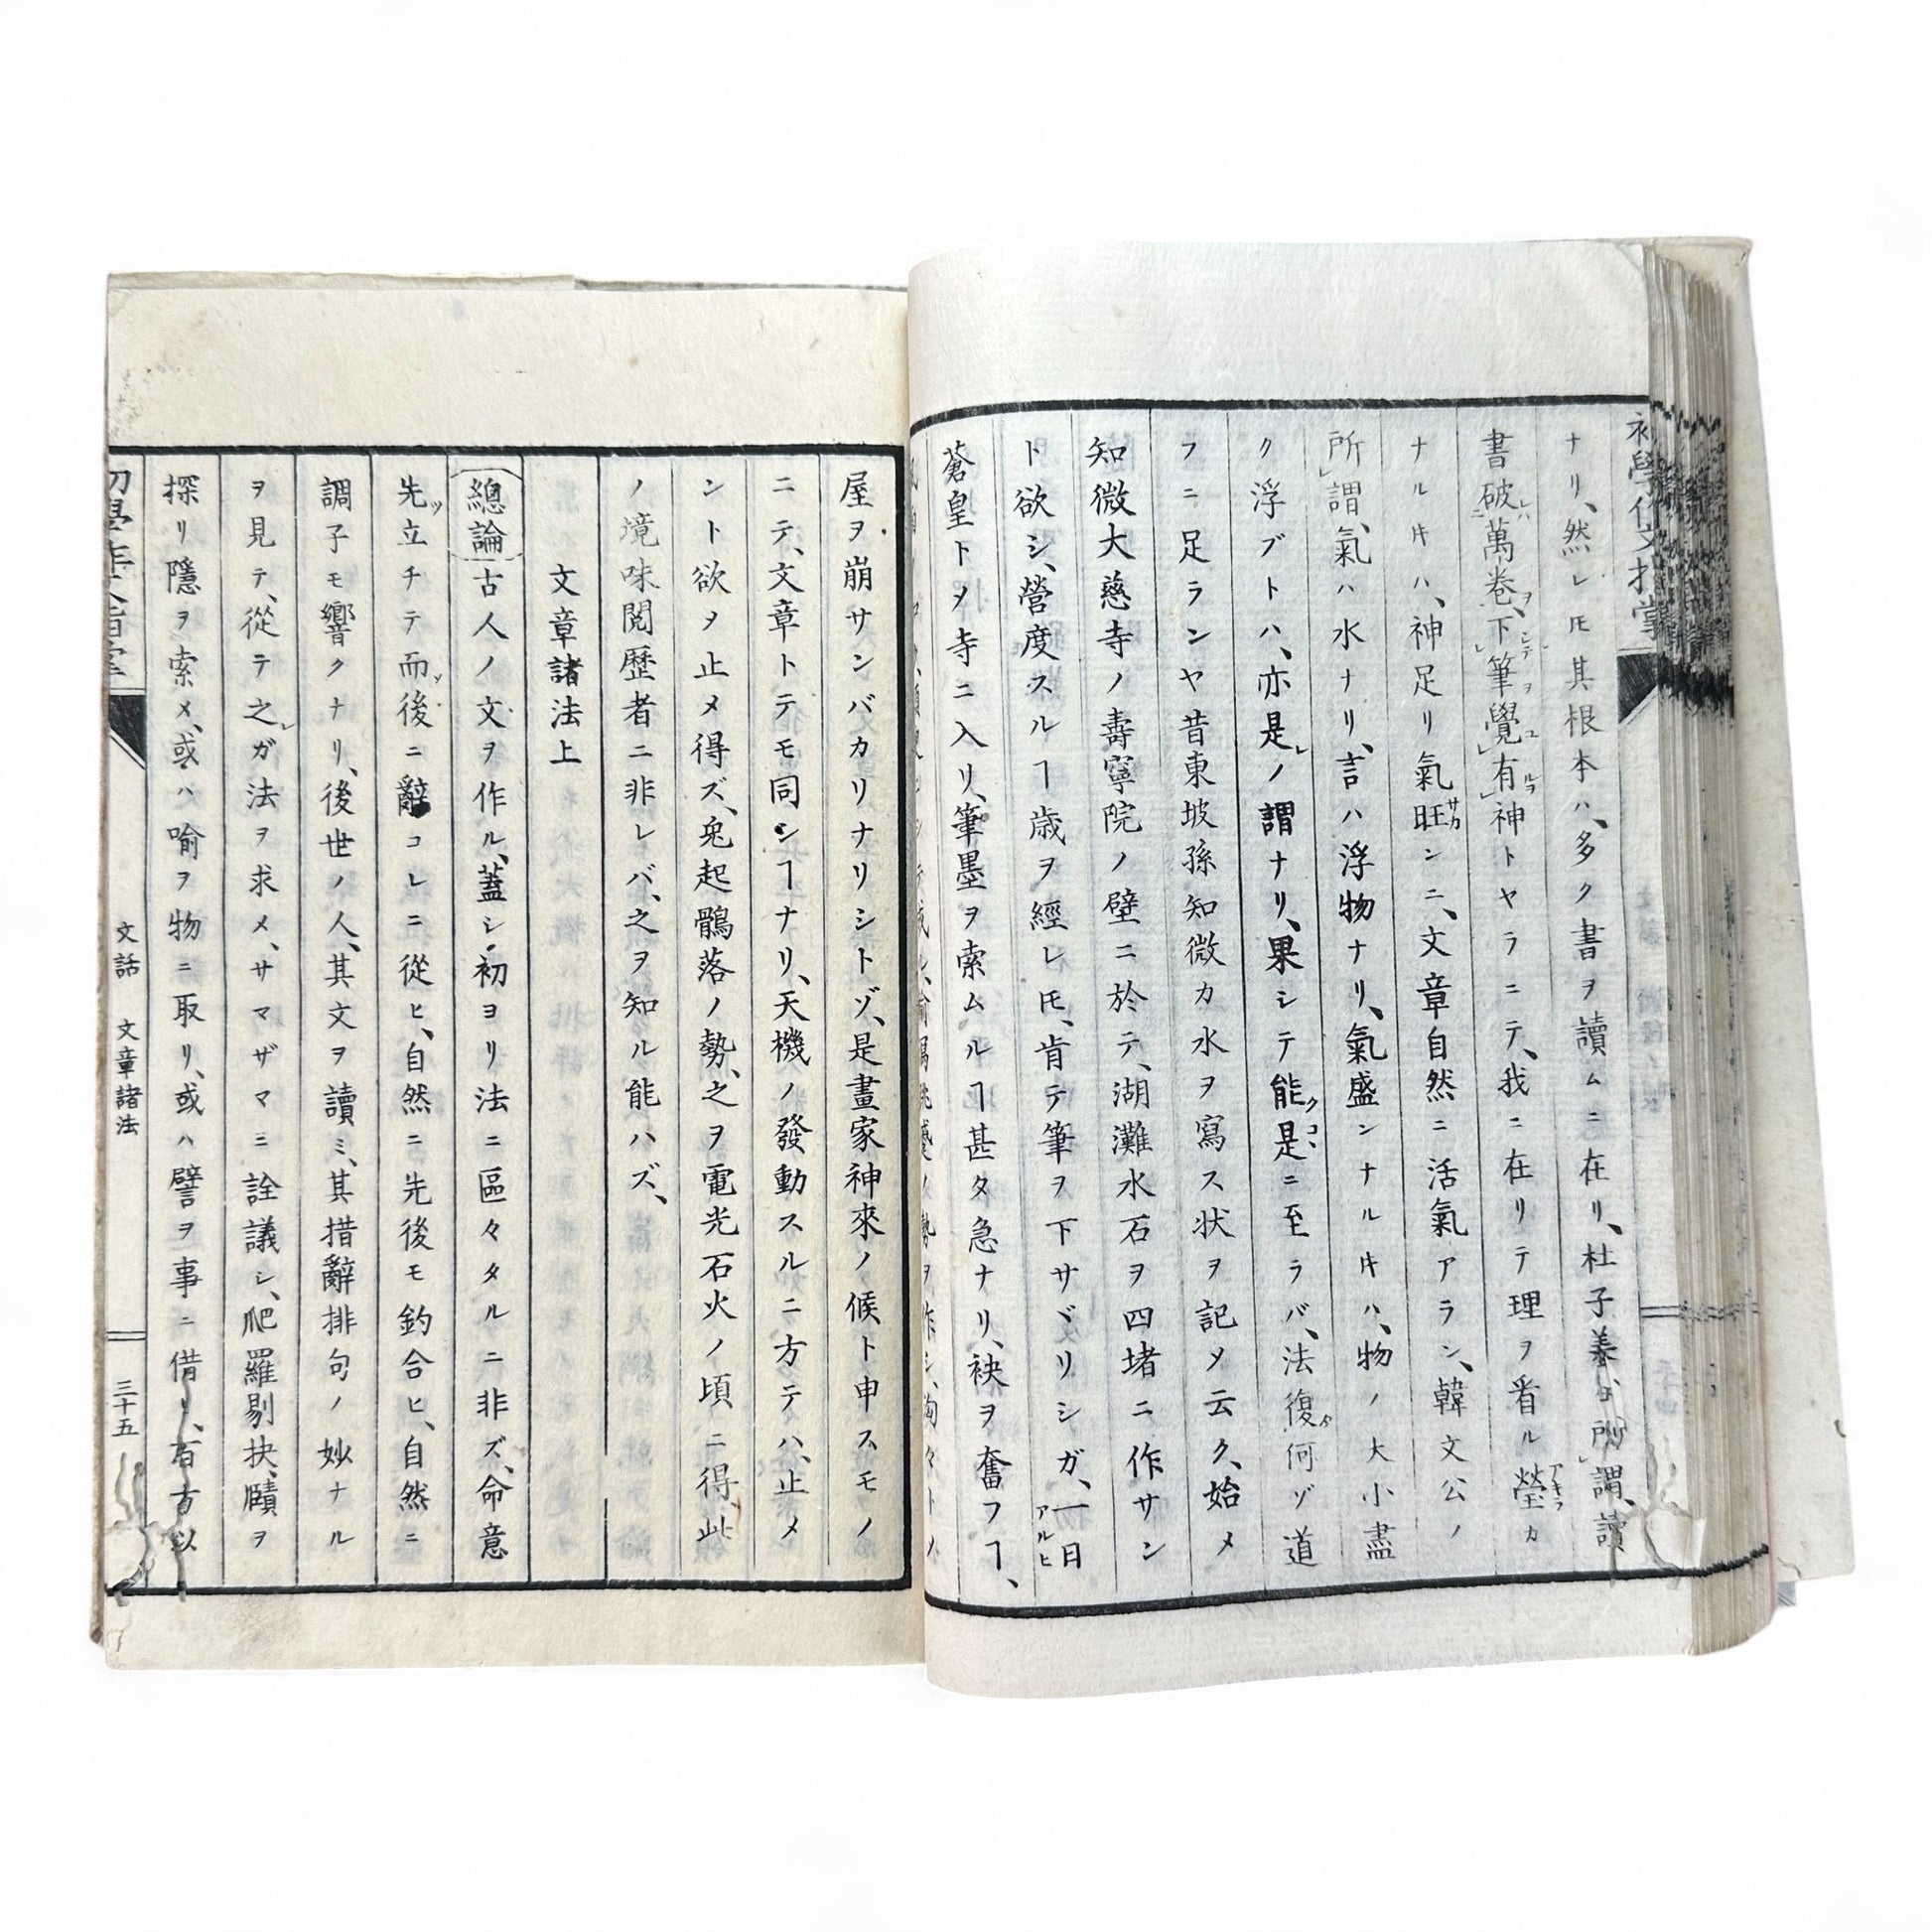 初學作文指掌
ナリ、然レ𪜈其根本ハ、多ク書ヲ讀ムニ在リ、杜子美ヨ所謂、讀
書破萬卷、下筆覺有神トヤラニテ、我ニ在リテ理ヲ看ル瑩カ
ナル片ハ、神足リ氣旺ンニ、文章自然ニ活氣アラン、韓文公ノ
所謂、氣ハ水ナリ、言ハ浮物ナリ、氣盛ンナル片ハ、物ノ大小盡
ク浮ブトハ、亦是ノ謂ナリ、果シテ能是ニ至ラバ、法復何ゾ道
フニ足ランヤ昔東坡孫知微カ水ヲ寫ス状ヲ記メ云ク、始メ
知微大慈寺ノ壽寧院ノ壁ニ於テ、湖灘水石ヲ四堵ニ作サン
ト欲シ、營度スルヿ歳ヲ經レ𪜈、肯テ筆ヲ下サヾリシガ、一日
蒼皇トメ寺ニ入リ、筆墨ヲ索ムルヿ甚タ急ナリ、袂ヲ奮フヿ、
屋ヲ崩サンバカリナリシトゾ、是畫家神來ノ候ト申スモノ
ニテ、文章トテモ同シヿナリ、天機ノ發動スルニ方テハ、止メ
ント欲メ止メ得ズ、兎起鶻落ノ勢、之ヲ電光石火ノ頃ニ得、此
ノ境味閲歷者ニ非レバ、之ヲ知ル能ハズ、
文章諸法上
總論 古人ノ文ヲ作ル、蓋シ初ヨリ法ニ區々タルニ非ズ、命意
先立チテ而後ニ辭コレニ從ヒ、自然ニ先後モ釣合ヒ、自然ニ
調子モ響クナリ、後世ノ人、其文ヲ讀ミ、其措辭排句ノ妙ナル
ヲ見テ、從テ之ガ法ヲ求メ、サマザマニ詮議シ、爬羅剔抉、賾ヲ
探リ隱ヲ索メ、或ハ喻ヲ物ニ取リ、或ハ譬ヲ事ニ借リ、百方以
文話 文章諸法 三十五